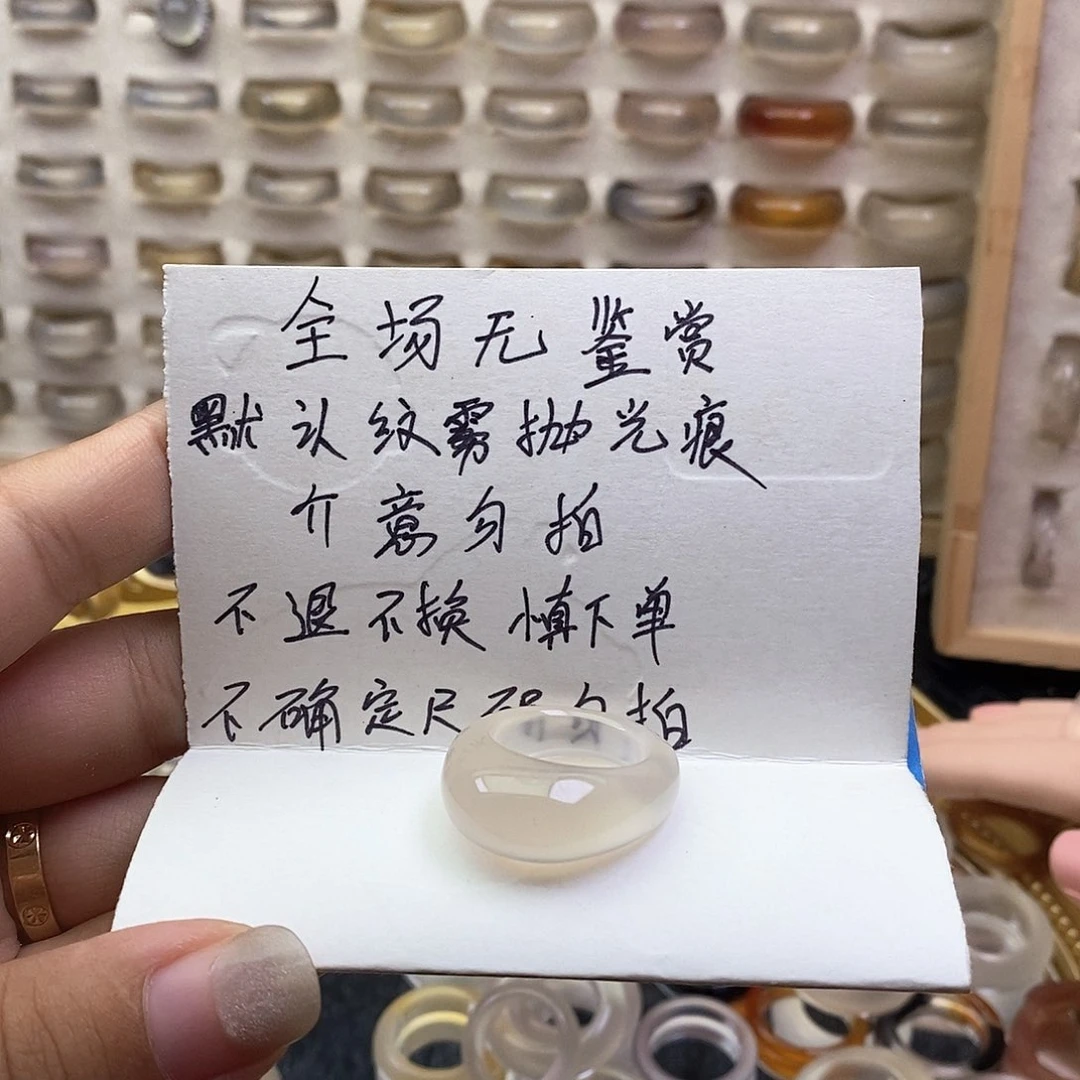 全场无鉴赏
默认纹雾抛光痕
介意勿拍
不退不换 慎下单
不确定尺码勿拍